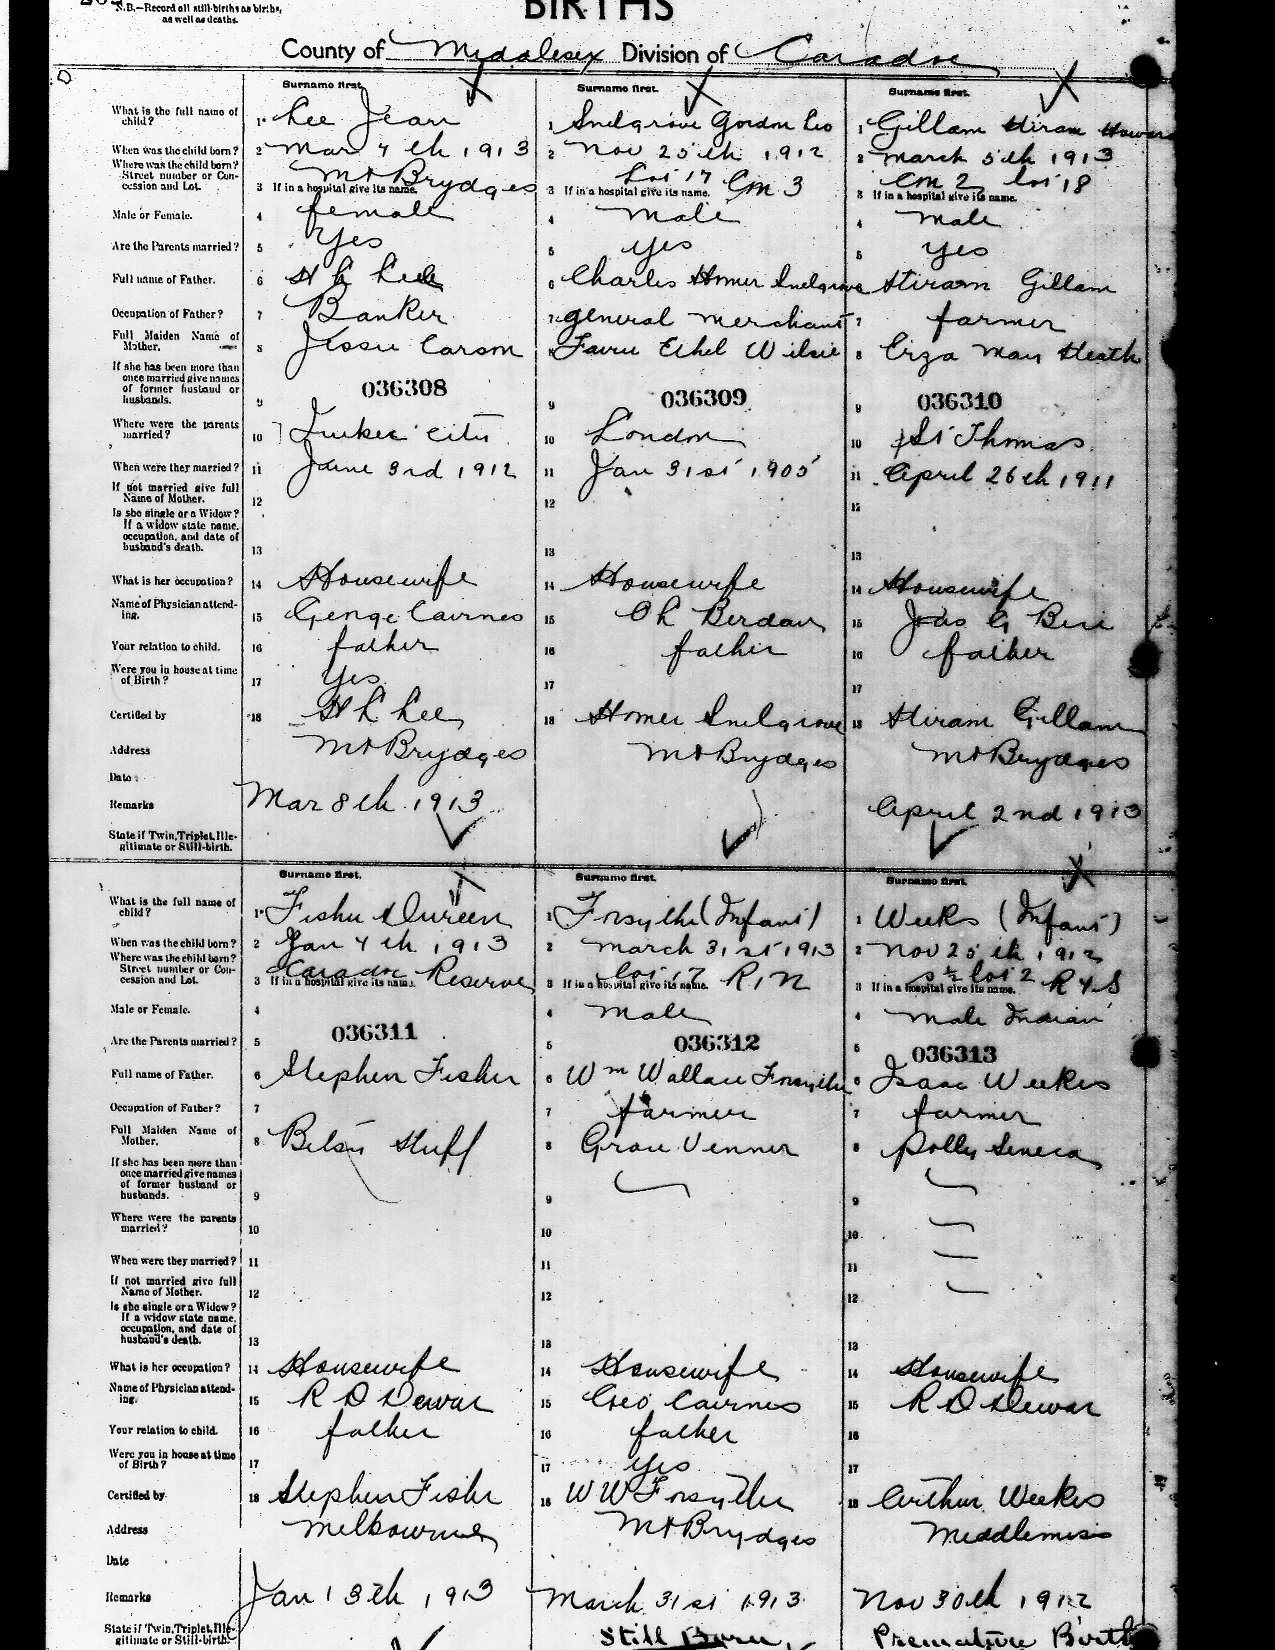 N.B.—Record all still-births as births,
as well as deaths.
BIRTHS
County of Middlesex Division of Caradoc
Surname first.
Surname first.
Surname first.
What is the full name of child? 1 Lee Jean 1 Snelgrove Gordon Leo 1 Gillam Hiram Howard
When was the child born? 2 Mar 4th 1913 2 Nov 25th 1912 2 March 5th 1913
Where was the child born? Street number or Concession and Lot. 3 If in a hospital give its name. Mt Brydges 3 If in a hospital give its name. Lot 17 Con 3 3 If in a hospital give its name. Con 2 lot 18
Male or Female. 4 female 4 male 4 male
Are the Parents married? 5 Yes 5 yes 5 yes
Full name of Father. 6 H L Lee 6 Charles Homer Snelgrove 6 Hiram Gillam
Occupation of Father? 7 Banker 7 general merchant 7 farmer
Full Maiden Name of Mother. 8 Jessie Carson 8 Ethel Wilsie 8 May Heath
If she has been more than once married give names of former husband or husbands. 9 036308 9 036309 9 036310
Where were the parents married? 10 City 10 London 10 St Thomas
When were they married? 11 June 3rd 1912 11 Jan 31st 1905 11 April 26th 1911
If not married give full Name of Mother. 12 12 12
Is she single or a Widow? If a widow state name, occupation, and date of husband's death. 13 13 13
What is her occupation? 14 Housewife 14 Housewife 14 Housewife
Name of Physician attending. 15 George Cairnes 15 O L Berdan 15 Jas G
Your relation to child. 16 father 16 father 16 father
Were you in house at time of Birth? 17 Yes 17 17
Certified by 18 H L Lee 18 Homer Snelgrove 18 Hiram Gillam
Address Mt Brydges Mt Brydges Mt Brydges
Date
Remarks Mar 8th 1913 April 2nd 1913
State if Twin, Triplet, Illegitimate or Still-birth.
Surname first.
Surname first.
Surname first.
What is the full name of child? 1 Fisher Dureen 1 Forsythe (Infant) 1 Weekes (Infant)
When was the child born? 2 Jan 4th 1913 2 March 31st 1913 2 Nov 25th 1912
Where was the child born? Street number or Concession and Lot. 3 If in a hospital give its name. Caradoc Reserve 3 If in a hospital give its name. lot 17 R 1 N 3 If in a hospital give its name. S ½ lot 2 R 4 S
Male or Female. 4 4 male 4 male Indian
Are the Parents married? 5 036311 5 036312 5 036313
Full name of Father. 6 Stephen Fisher 6 Wm Wallace Forsythe 6 Isaac Weekes
Occupation of Father? 7 7 farmer 7 farmer
Full Maiden Name of Mother. 8 Betsy Huff 8 Grace Venner 8 Dolly Seneca
If she has been more than once married give names of former husband or husbands. 9 9 9
Where were the parents married? 10 10 10
When were they married? 11 11 11
If not married give full Name of Mother. 12 12 12
Is she single or a Widow? If a widow state name, occupation, and date of husband's death. 13 13 13
What is her occupation? 14 Housewife 14 Housewife 14 Housewife
Name of Physician attending. 15 R D Dewar 15 Geo Cairnes 15 R D Dewar
Your relation to child. 16 father 16 father 16
Were you in house at time of Birth? 17 17 yes 17
Certified by 18 Stephen Fisher 18 W W Forsythe 18 Arthur Weekes
Address Melbourne Mt Brydges Middlemiss
Date
Remarks Jan 13th 1913 March 31st 1913 Nov 30th 1912
State if Twin, Triplet, Illegitimate or Still-birth. Still Born Premature Birth